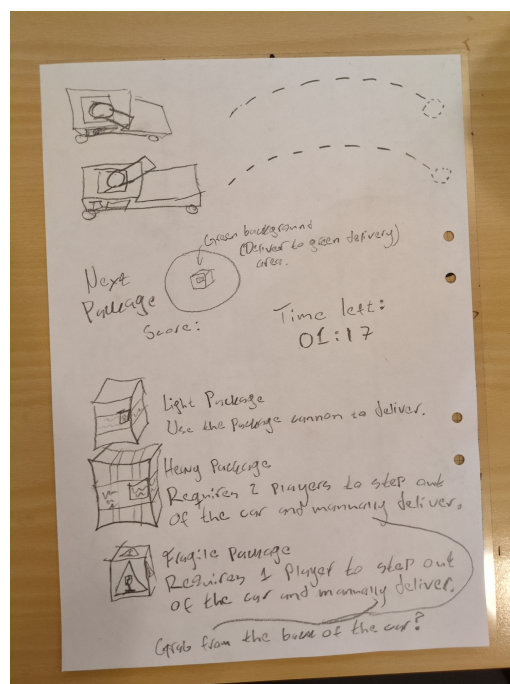 Green background
(Deliver to green delivery)
area.
Next
Package
Score:
Time left:
01:17
Light Package
Use the Package cannon to deliver.
Heavy Package
Requires 2 Players to step out
of the car and manually deliver.
Fragile Package
Requires 1 Player to step out
of the car and manually deliver.
Grab from the back of the car?